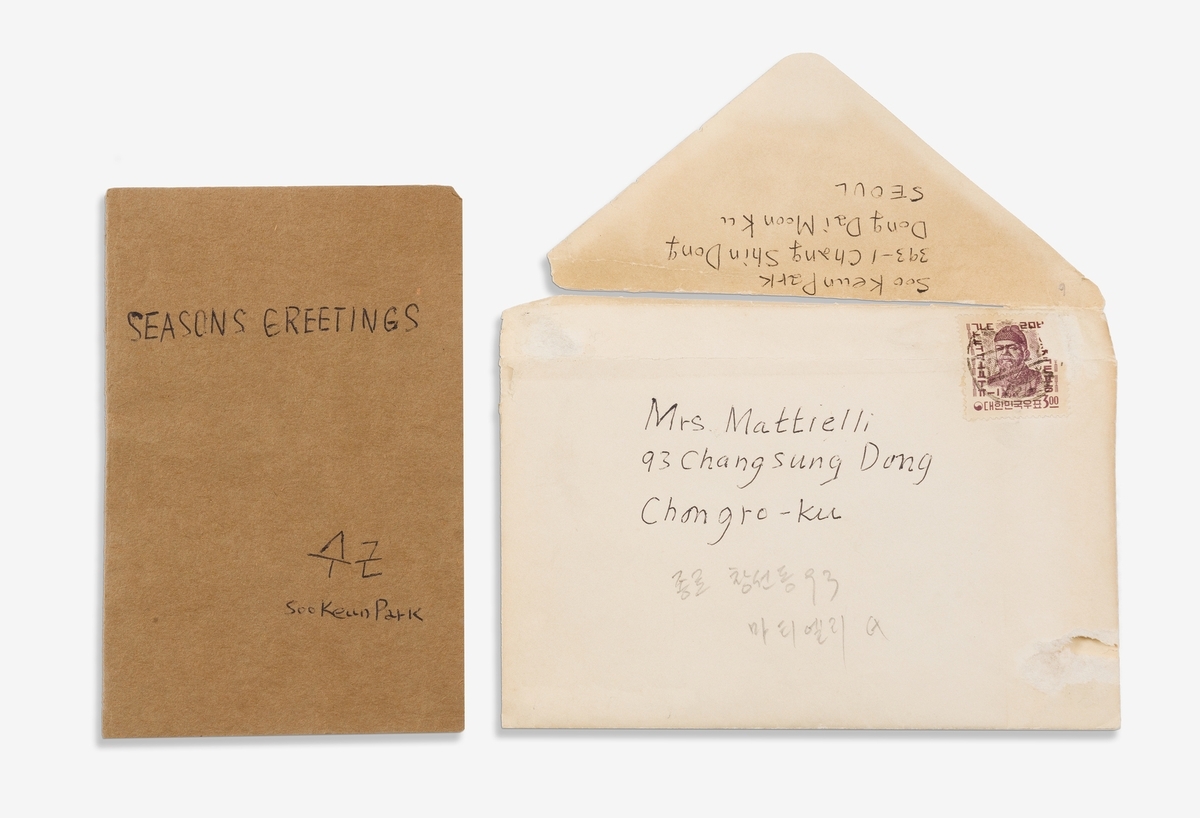 SEASONS GREETINGS
수근
Soo Keun Park
Soo Keun Park
393-1 Chang Shin Dong
Dong Dai Moon Ku
SEOUL
9
대한민국우표 3.00
Mrs. Mattielli
93 Changsung Dong
Chongro-ku
종로 창선동 93
마티엘리